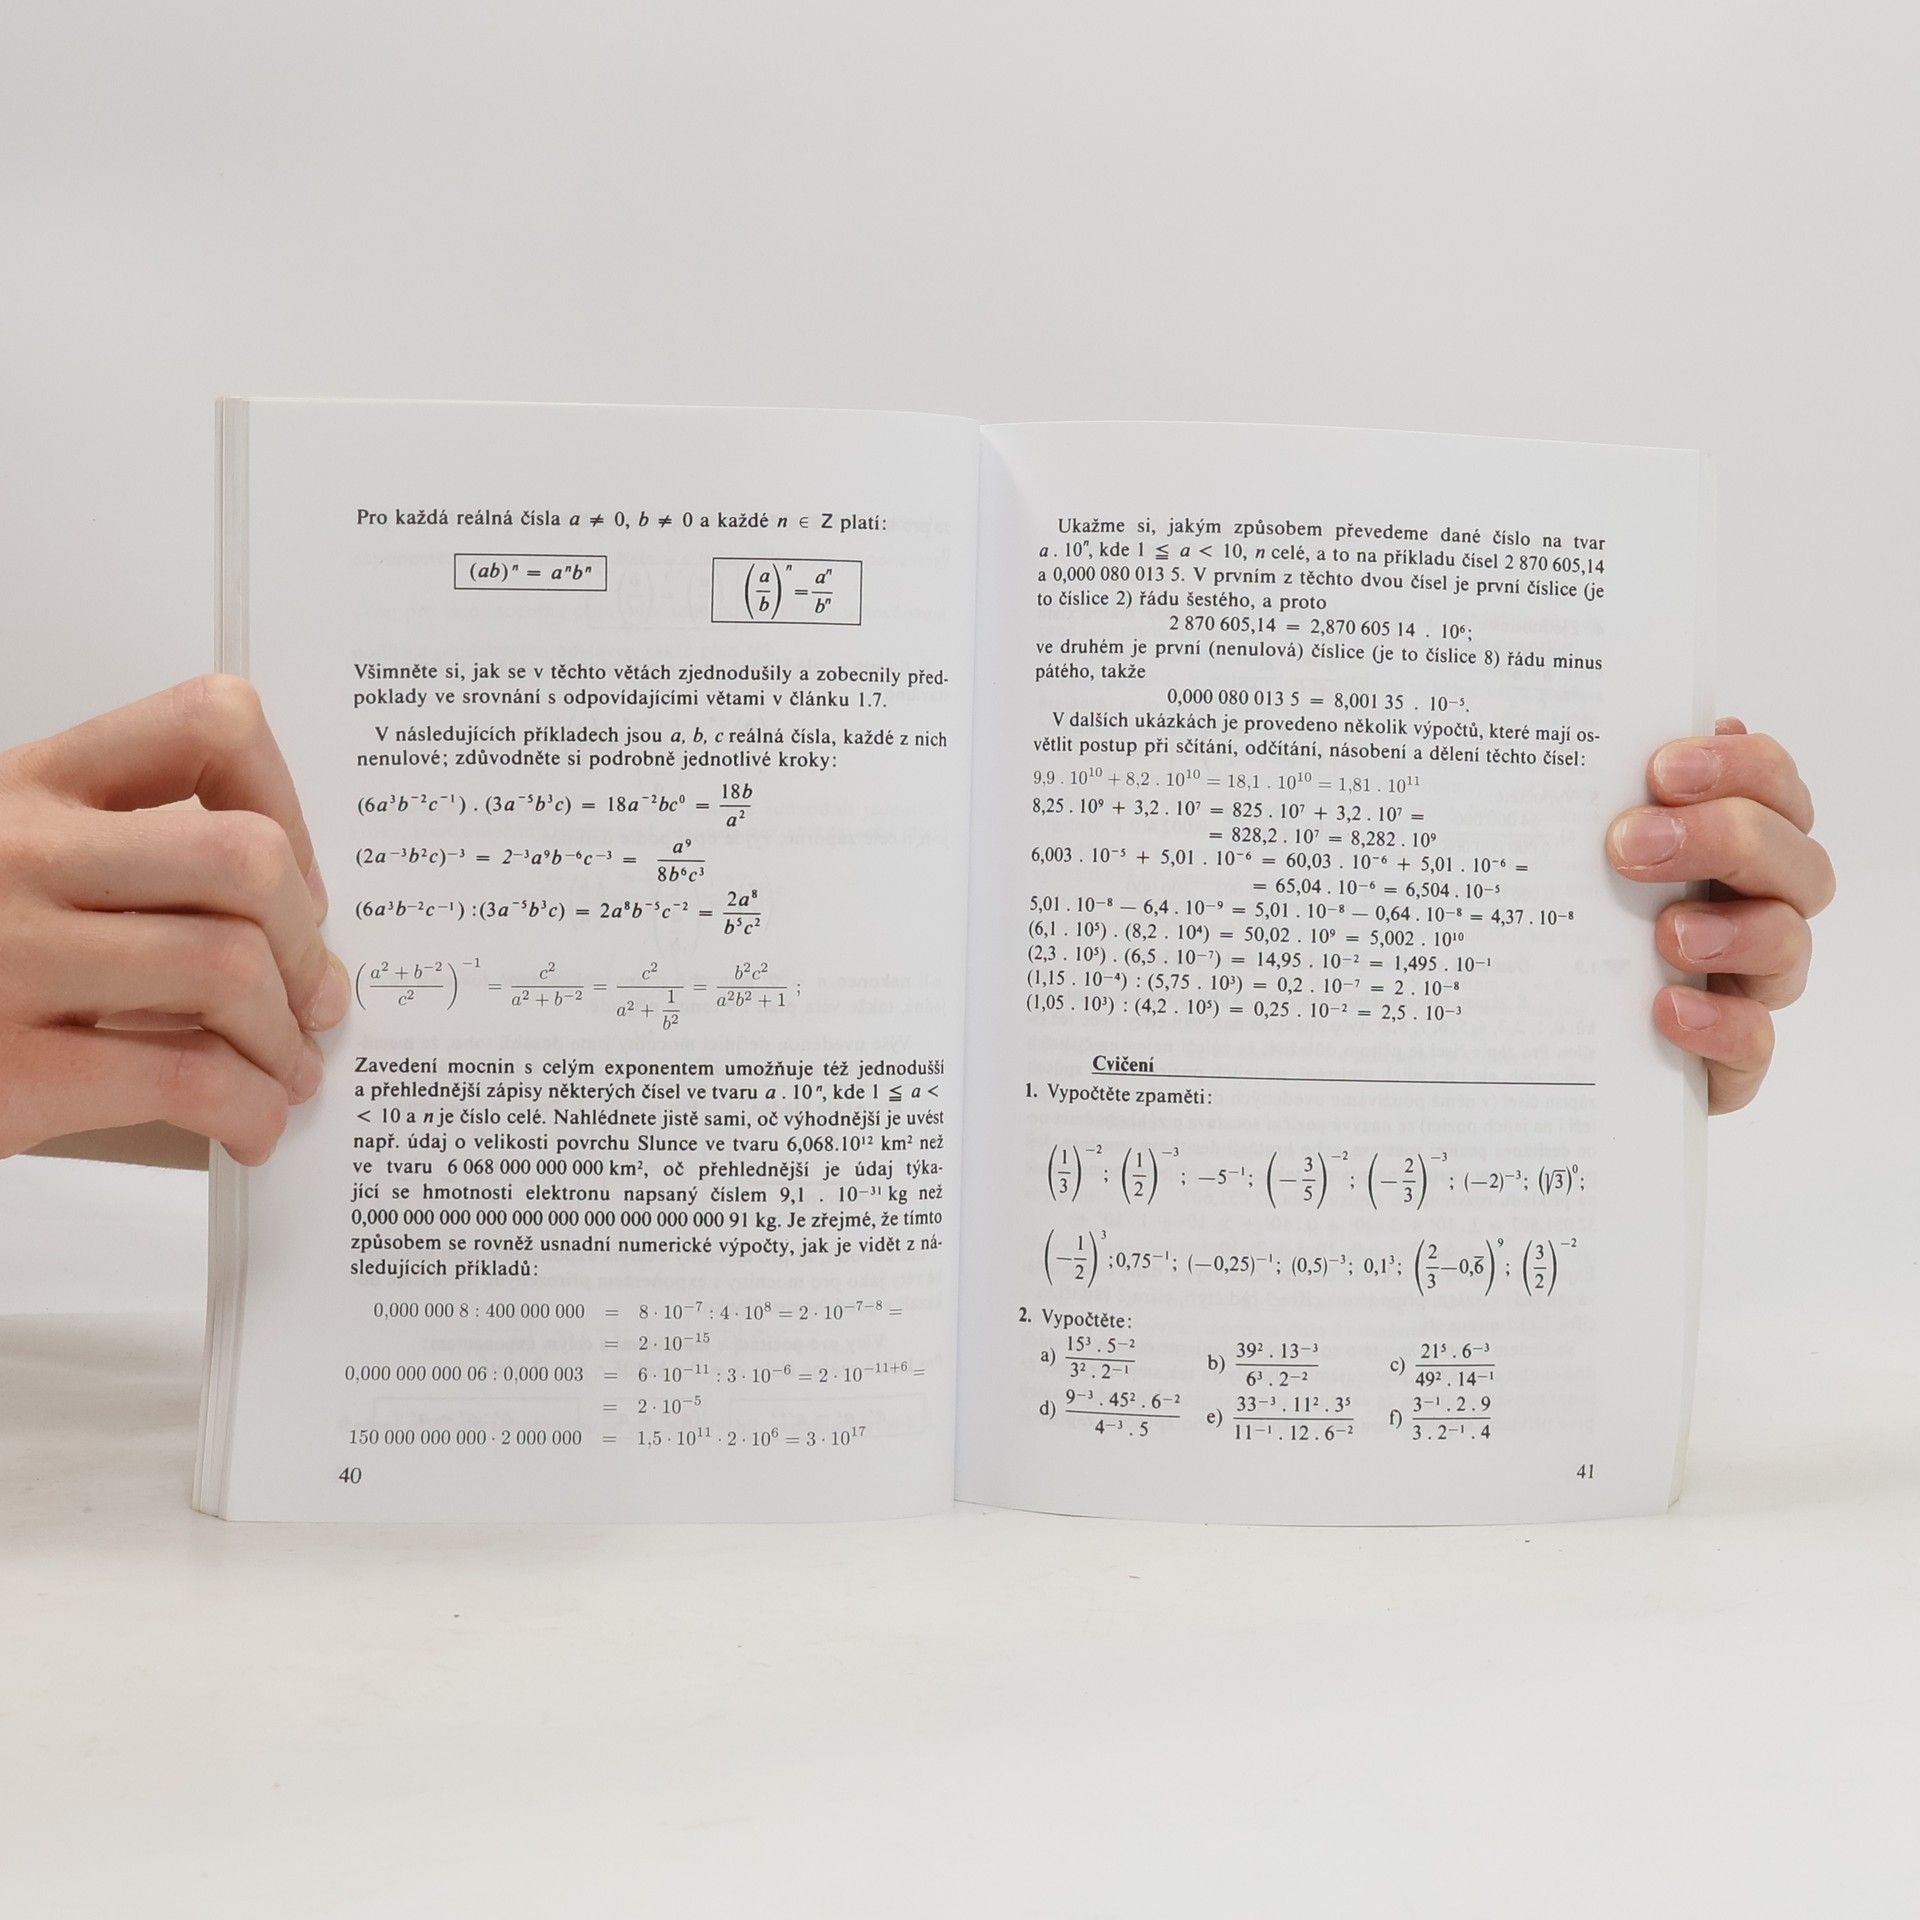 Pro každá reálná čísla a ≠ 0, b ≠ 0 a každé n ∈ Z platí:
(ab)ⁿ = aⁿbⁿ
(a/b)ⁿ = aⁿ/bⁿ
Všimněte si, jak se v těchto větách zjednodušily a zobecnily před-
poklady ve srovnání s odpovídajícími větami v článku 1.7.
V následujících příkladech jsou a, b, c reálná čísla, každé z nich
nenulové; zdůvodněte si podrobně jednotlivé kroky:
(6a³b⁻²c⁻¹) . (3a⁻⁵b³c) = 18a⁻²bc⁰ = 18b/a²
(2a⁻³b²c)⁻³ = 2⁻³a⁹b⁻⁶c⁻³ = a⁹/8b⁶c³
(6a³b⁻²c⁻¹) :(3a⁻⁵b³c) = 2a⁸b⁻⁵c⁻² = 2a⁸/b⁵c²
((a² + b⁻²)/c²)⁻¹ = c²/(a² + b⁻²) = c²/(a² + 1/b²) = b²c²/(a²b² + 1) ;
Zavedení mocnin s celým exponentem umožňuje též jednodušší
a přehlednější zápisy některých čísel ve tvaru a . 10ⁿ, kde 1 ≦ a <
< 10 a n je číslo celé. Nahlédnete jistě sami, oč výhodnější je uvést
např. údaj o velikosti povrchu Slunce ve tvaru 6,068.10¹² km² než
ve tvaru 6 068 000 000 000 km², oč přehlednější je údaj týka-
jící se hmotnosti elektronu napsaný číslem 9,1 . 10⁻³¹ kg než
0,000 000 000 000 000 000 000 000 000 000 91 kg. Je zřejmé, že tímto
způsobem se rovněž usnadní numerické výpočty, jak je vidět z ná-
sledujících příkladů:
0,000 000 8 : 400 000 000 = 8 · 10⁻⁷ : 4 · 10⁸ = 2 · 10⁻⁷⁻⁸ =
= 2 · 10⁻¹⁵
0,000 000 000 06 : 0,000 003 = 6 · 10⁻¹¹ : 3 · 10⁻⁶ = 2 · 10⁻¹¹⁺⁶ =
= 2 · 10⁻⁵
150 000 000 000 · 2 000 000 = 1,5 · 10¹¹ · 2 · 10⁶ = 3 · 10¹⁷
40
Ukažme si, jakým způsobem převedeme dané číslo na tvar
a . 10ⁿ, kde 1 ≦ a < 10, n celé, a to na příkladu čísel 2 870 605,14
a 0,000 080 013 5. V prvním z těchto dvou čísel je první číslice (je
to číslice 2) řádu šestého, a proto
2 870 605,14 = 2,870 605 14 . 10⁶;
ve druhém je první (nenulová) číslice (je to číslice 8) řádu minus
pátého, takže
0,000 080 013 5 = 8,001 35 . 10⁻⁵.
V dalších ukázkách je provedeno několik výpočtů, které mají os-
větlit postup při sčítání, odčítání, násobení a dělení těchto čísel:
9,9 . 10¹⁰ + 8,2 . 10¹⁰ = 18,1 . 10¹⁰ = 1,81 . 10¹¹
8,25 . 10⁹ + 3,2 . 10⁷ = 825 . 10⁷ + 3,2 . 10⁷ =
= 828,2 . 10⁷ = 8,282 . 10⁹
6,003 . 10⁻⁵ + 5,01 . 10⁻⁶ = 60,03 . 10⁻⁶ + 5,01 . 10⁻⁶ =
= 65,04 . 10⁻⁶ = 6,504 . 10⁻⁵
5,01 . 10⁻⁸ — 6,4 . 10⁻⁹ = 5,01 . 10⁻⁸ — 0,64 . 10⁻⁸ = 4,37 . 10⁻⁸
(6,1 . 10⁵) . (8,2 . 10⁴) = 50,02 . 10⁹ = 5,002 . 10¹⁰
(2,3 . 10⁵) . (6,5 . 10⁻⁷) = 14,95 . 10⁻² = 1,495 . 10⁻¹
(1,15 . 10⁻⁴) : (5,75 . 10³) = 0,2 . 10⁻⁷ = 2 . 10⁻⁸
(1,05 . 10³) : (4,2 . 10⁵) = 0,25 . 10⁻² = 2,5 . 10⁻³
Cvičení
1. Vypočtěte zpaměti:
(1/3)⁻² ; (1/2)⁻³ ; —5⁻¹; (—3/5)⁻² ; (—2/3)⁻³ ; (—2)⁻³; (√3)⁰;
(—1/2)³ ;0,75⁻¹; (—0,25)⁻¹; (0,5)⁻³; 0,1³; (2/3—0,6̅)⁹ ; (3/2)⁻²
2. Vypočtěte:
a) (15³ . 5⁻²)/(3² . 2⁻¹) b) (39² . 13⁻³)/(6³ . 2⁻²) c) (21⁵ . 6⁻³)/(49² . 14⁻¹)
d) (9⁻³ . 45² . 6⁻²)/(4⁻³ . 5) e) (33⁻³ . 11² . 3⁵)/(11⁻¹ . 12 . 6⁻²) f) (3⁻¹ . 2 . 9)/(3 . 2⁻¹ . 4)
41